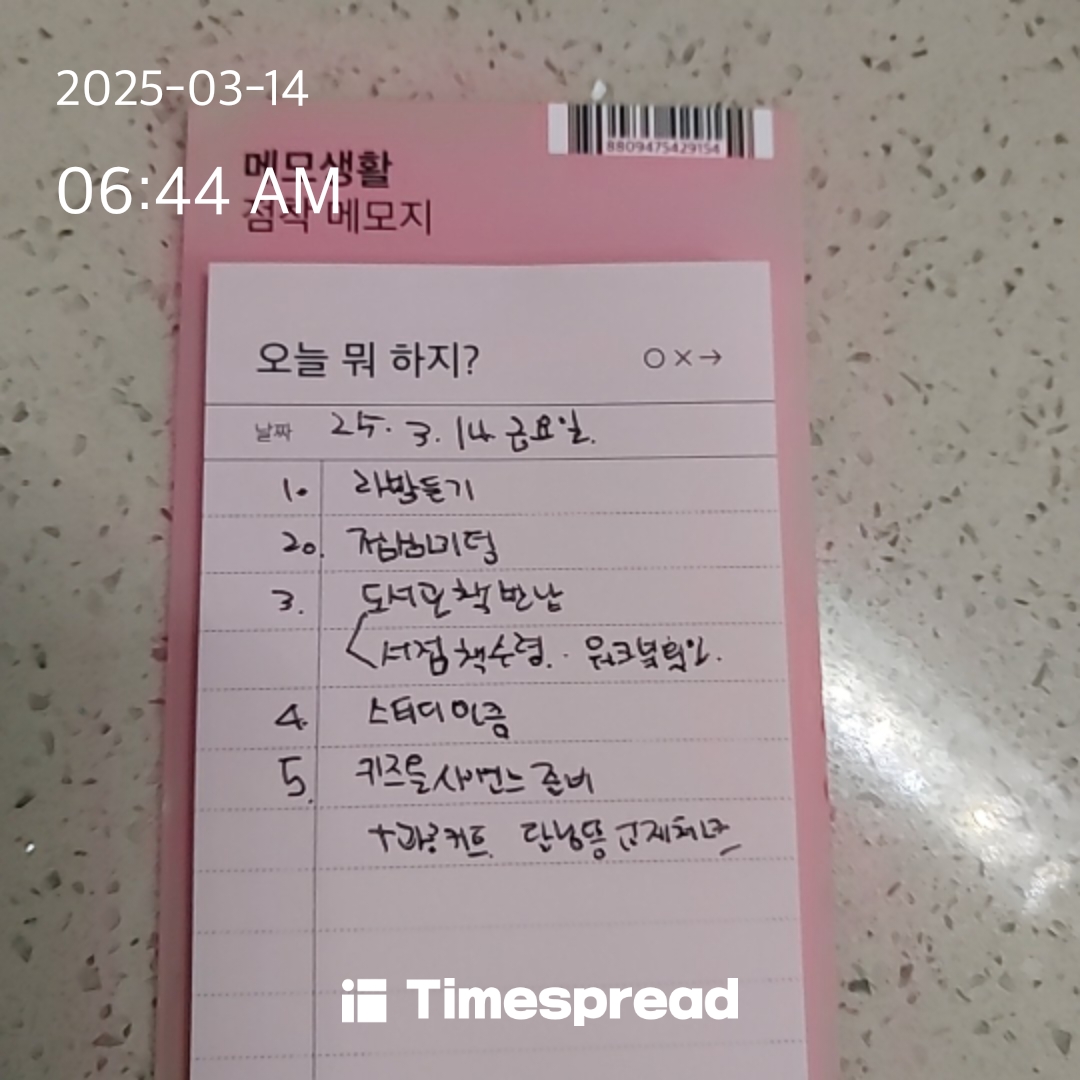 2025-03-14
06:44 AM
8809475429154
메모생활
점착 메모지
오늘 뭐 하지?
○×→
날짜 25. 3. 14 금요일.
1. 라방듣기
2. 점심미팅
3. 도서관 책 반납
서점 책수령. 워크북확인.
4. 스터디인증
5. 키즈올사이언스 준비
+ 교제체크
Timespread